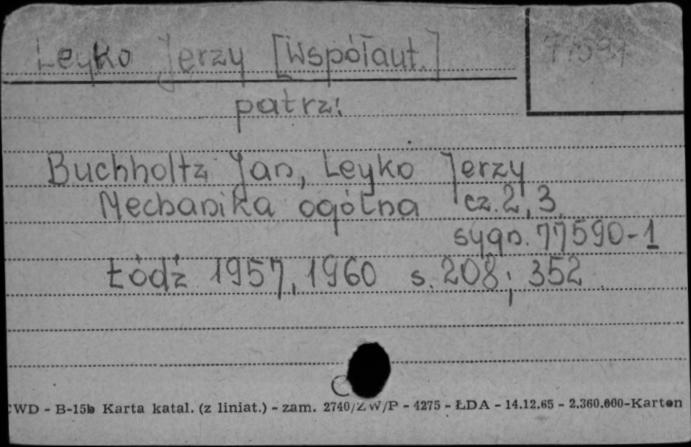 Leyko Jerzy [Współaut.]
77591
patrz:
Buchholtz Jan, Leyko Jerzy
Mechanika ogólna cz. 2, 3
sygn. 77590-1
Łódź 1957, 1960 s. 208; 352
CWD - B-15b Karta katal. (z liniat.) - zam. 2740/ZW/P - 4275 - ŁDA - 14.12.65 - 2.360.000-Karton